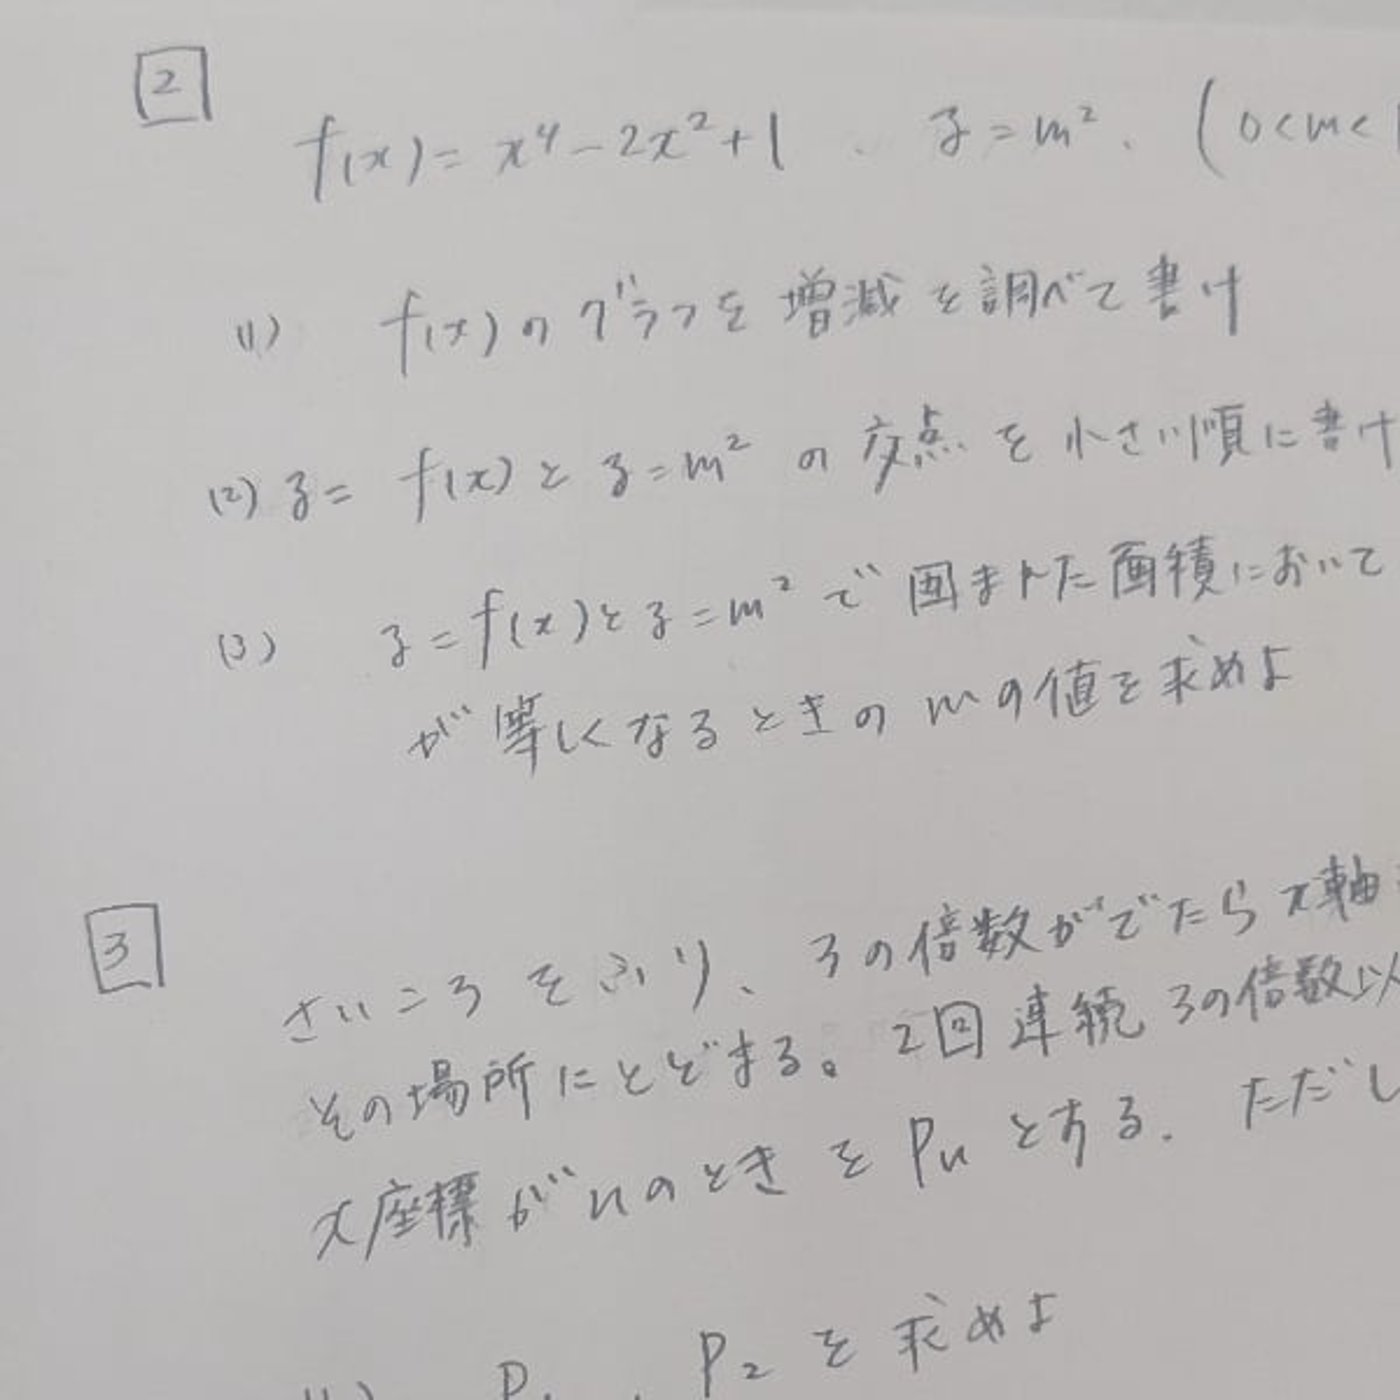 2
f(x) = x⁴ - 2x² + 1 、 y = m². (0<m<
(1) f(x)のグラフを増減を調べて書け
(2) y = f(x)とy=m² の交点を小さい順に書け
(3) y=f(x)とy=m²で囲まれた面積において
が等しくなるときのmの値を求めよ
3
さいころをふり、3の倍数がでたらx軸
その場所にとどまる。2回連続3の倍数以
x座標がnのときをPnとする. ただし
P₂を求めよ